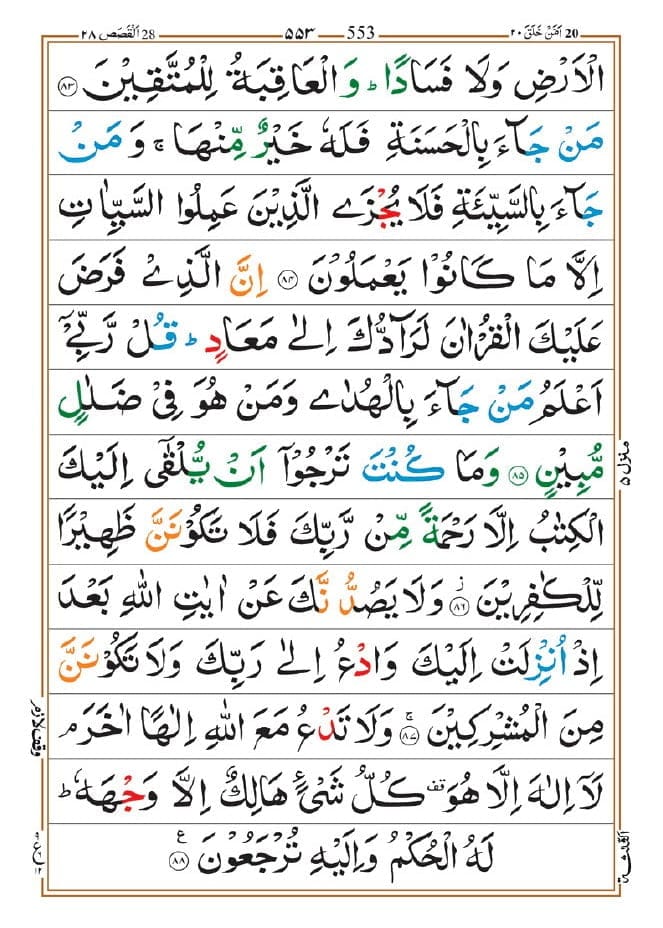 20 اَمَّنْ خَلَقَ ٢٠ 553 ٥٥٣ 28 اَلْقَصَص ٢٨
الْاَرْضِ وَلَا فَسَادًا ؕ وَالْعَاقِبَةُ لِلْمُتَّقِيْنَ ۝٨٣
مَنْ جَآءَ بِالْحَسَنَةِ فَلَهٗ خَيْرٌ مِّنْهَا ۚ وَمَنْ
جَآءَ بِالسَّيِّئَةِ فَلَا يُجْزَى الَّذِيْنَ عَمِلُوا السَّيِّاٰتِ
اِلَّا مَا كَانُوْا يَعْمَلُوْنَ ۝٨٤ اِنَّ الَّذِيْ فَرَضَ
عَلَيْكَ الْقُرْاٰنَ لَرَآدُّكَ اِلٰى مَعَادٍ ؕ قُلْ رَّبِّيْٓ
اَعْلَمُ مَنْ جَآءَ بِالْهُدٰى وَمَنْ هُوَ فِيْ ضَلٰلٍ
مُّبِيْنٍ ۝٨٥ وَمَا كُنْتَ تَرْجُوْٓا اَنْ يُّلْقٰٓى اِلَيْكَ
الْكِتٰبُ اِلَّا رَحْمَةً مِّنْ رَّبِّكَ فَلَا تَكُوْنَنَّ ظَهِيْرًا
لِّلْكٰفِرِيْنَ ۝٨٦ ز وَلَا يَصُدُّنَّكَ عَنْ اٰيٰتِ اللّٰهِ بَعْدَ
اِذْ اُنْزِلَتْ اِلَيْكَ وَادْعُ اِلٰى رَبِّكَ وَلَا تَكُوْنَنَّ
مِنَ الْمُشْرِكِيْنَ ۝٨٧ ۚ وَلَا تَدْعُ مَعَ اللّٰهِ اِلٰهًا اٰخَرَ ۘ
لَآ اِلٰهَ اِلَّا هُوَ قف كُلُّ شَيْءٍ هَالِكٌ اِلَّا وَجْهَهٗ ؕ
لَهُ الْحُكْمُ وَاِلَيْهِ تُرْجَعُوْنَ ۝٨٨ ع
منزل ٥
وقف لازم